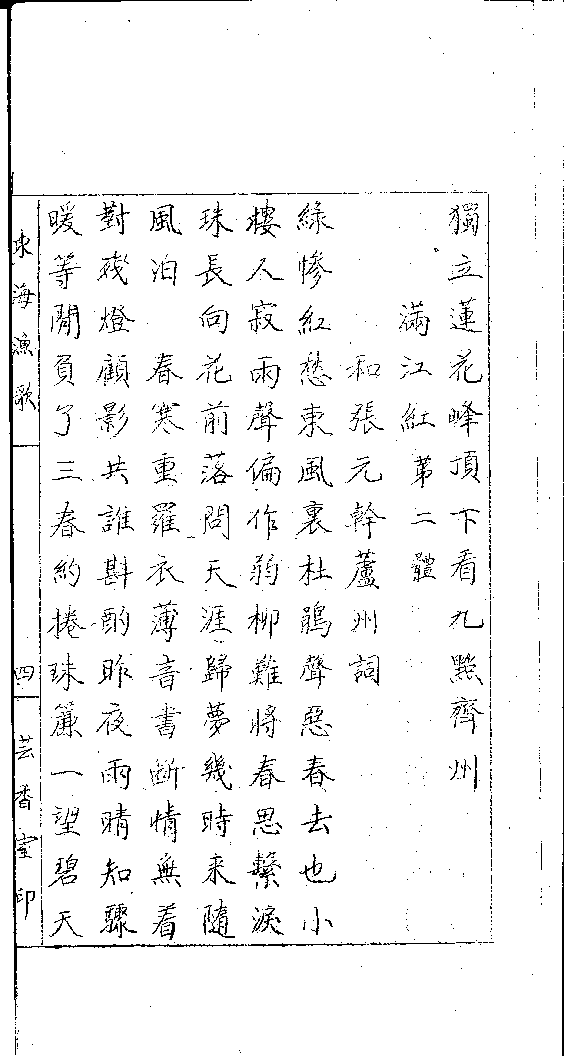 獨立蓮花峰頂下看九點齊州
滿江紅 第二體
和張元幹蘆州詞
綠慘紅愁東風裏杜鵑聲惡春去也小
樓人寂雨聲偏作弱柳難將春思繫淚
珠長向花前落問天涯歸夢幾時來隨
風泊 春寒重羅衣薄音書斷情無着
對殘燈顧影共誰斟酌昨夜雨晴知驟
暖等閒負了三春約捲珠簾一望碧天
東海漁歌
四
芸香室印